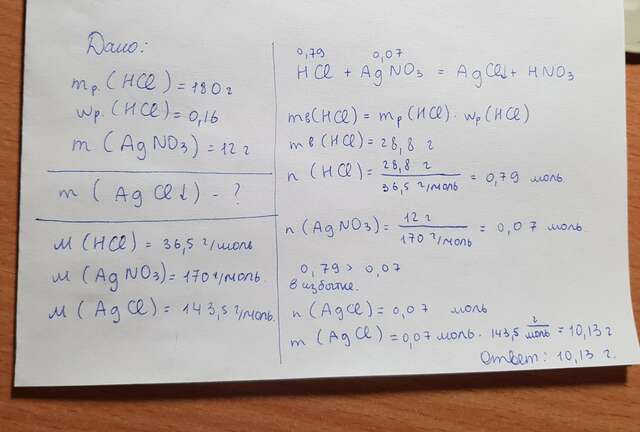 Дано:
mр.(HCl) = 180 г
wр.(HCl) = 0,16
m (AgNO3) = 12 г
m (AgCl↓) - ?
M (HCl) = 36,5 г/моль
M (AgNO3) = 170 г/моль.
M (AgCl) = 143,5 г/моль.
0,79 0,07
HCl + AgNO3 = AgCl↓ + HNO3
mв(HCl) = mр(HCl) · wр(HCl)
mв(HCl) = 28,8 г
n (HCl) = 28,8 г / 36,5 г/моль = 0,79 моль
n (AgNO3) = 12 г / 170 г/моль = 0,07 моль.
0,79 > 0,07
в избытке.
n (AgCl) = 0,07 моль
m (AgCl) = 0,07 моль · 143,5 г/моль = 10,13 г
Ответ: 10,13 г.